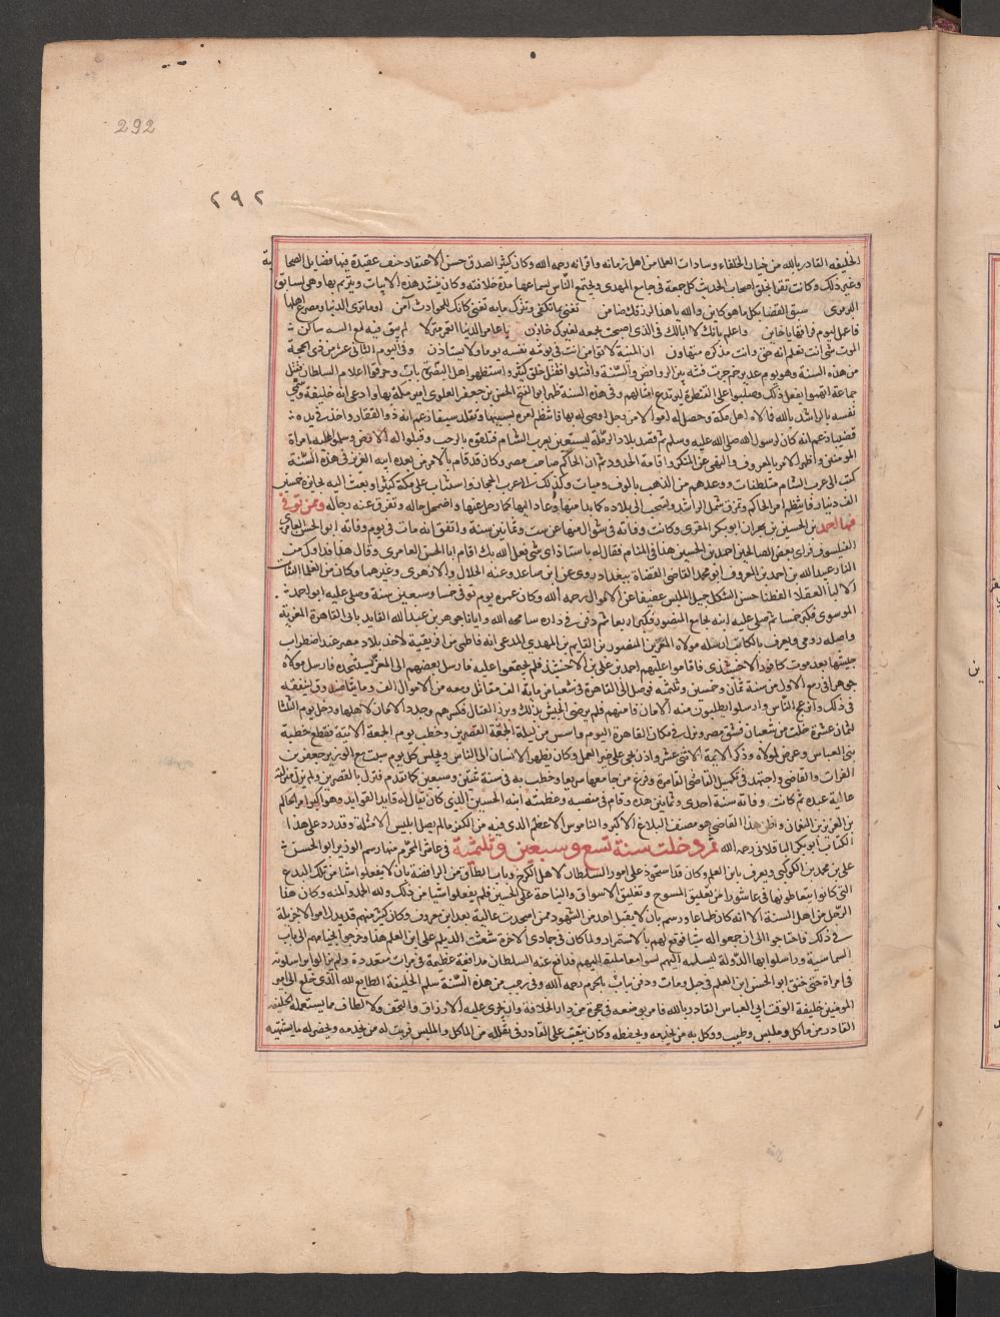 292
٢٩٢
الخليفه القادر بالله من خيار الخلفاء وسادات العلما من اهل زمانه واقرانه رحمه الله وكان كثير الصدق حسن الاعتقاد صنف عقيدة فيها فضايل الصحابة
وغير ذلك وكانت تقرا بحلق اصحاب الحديث كل جمعة فى جامع المهدى ويجتمع الناس لسماعها مدة خلافته وكان ينشد هذه الابيات ويترنم بها وهى لسابق
البربرى سبق القضا بكل ما هو كاين والله يا هذا لرزقك ضامن تعنى بما تكفى وتترك ما به تعنى كانك للحوادث آمن اوما ترى الدنيا ومصرع اهلها
فاعمل ليوم فراقها يا خاين واعلم بانك لا ابالك فى الذى اصبحت تجمعه لغيرك خازن يا عامر الدنيا اتعمر منزلا لم يبق فيه مع المنيه ساكن
الموت شى انت تعلم انه حق وانت بذكره متهاون ان المنية لا تؤامر من اتت فى نفسه يوما ولا يستاذن وفى اليوم الثانى عشر من ذى الحجة
من هذه السنة وهو يوم غدير خم جرت فتنه بين الروافض والسنة واقتتلوا فقتل خلق كثير واستظهر اهل باب البصرة وحرقوا اعلام السلطان فقتل
جماعة اتهموا بفعل ذلك وصلبوا على القنطرة ليرتدع امثالهم وفى هذه السنة ظهر ابو الفتوح الحسن بن جعفر العلوى امير مكة بها وادعى انه خليفة وسمى
نفسه بالراشد بالله فمالاه اهل مكة وحصل له اموالا من رجل اوصى له بها فانتظم امره بسببها وتقلد سيفا زعم انه ذو الفقار واخذ فى يده
قضيبا زعم انه كان لرسول الله صلى الله عليه وسلم ثم قصد بلاد الرملة ليستعين بعرب الشام فتلقوه بالرحب وقبلوا له الارض وسلموا عليه بامرة
المومنين واظهر الامر بالمعروف والنهى عن المنكر واقامة الحدود ثم ان الحاكم صاحب مصر وكان قد قام بالامر من بعد ابيه العزيز فى هذه السنة
كتب الى عرب الشام ملطفات ووعدهم من الذهب بالوف وميات وكذلك الى عرب الحجاز واستناب على مكة اميرا وبعث اليه بخمسين
الف دينار فانتظم امر الحاكم وتمزق شمل الراشد وانسحب الى بلاده كما بدا منها وعاد اليها كما رحل عنها واضمحل حاله وتفرق عنه رجاله وممن توفى
فيها احمد بن الحسين بن مهران ابو بكر المقرى وكانت وفاته فى شوال منها عن ست وثمانين سنة واتفق انه مات فى يوم وفاته ابو الحسن العامرى
الفيلسوف فراى بعض الصالحين احمد بن الحسين هذا فى المنام فقال له يا استاذ اى شى فعل الله بك اقام ابا الحسن العامرى وقال هذا فداوك من
النار عبيد الله بن احمد بن المعروف ابو محمد القاضى القضاة ببغداد روى عن ابن صاعد وعنه الخلال والازهرى وغيرهما وكان من العلما الثقات
الالبا العقلا الفطنا حسن الشكل جميل الملبس عفيفا عن الاموال رحمه الله وكان عمره يوم توفى خمسا وسبعين سنة وصلى عليه ابو احمد
الموسوى فكبر خمسا ثم صلى عليه ابنه بجامع المنصور فكبر اربعا ثم دفن فى داره سامحه الله واياناجوهر بن عبد الله القايد بانى القاهرة المعزية
واصله رومى ويعرف بالكاتب ارسله مولاه المعز بن المنصور بن القايم بن المهدى المدعى انه فاطمى من افريقية لاخذ بلاد مصر عند اضطراب
جيشها بعد موت كافور الاخشيدى فاقاموا عليهم احمد بن على بن الاخشيذ فلم يجتمعوا عليه فارسل بعضهم الى المعز يستنجده فارسل مولاه
جوهرا فى ربيع الاول من سنة ثمان وخمسين وثلثمية فوصل الى القاهرة فى شعبان فى ماية الف مقاتل ومعه من الاموال الف ومايتا صندوق لينفقه
فى ذلك وانزعج الناس وارسلوا يطلبون منه الامان فامنهم فلم يرضى الجيش بذلك وبرز القتال فكسرهم وجدد الامان لاهلها ودخل يوم الثلثا
لثمان عشرة خلت من شعبان فشق مصر ونزل فى مكان القاهرة اليوم واسس من ليلته القصرين وخطب يوم الجمعة الاتية فقطع خطبة
بنى العباس وعوض لمولاه وذكر الايمة الاثنى عشر واذن بحى على خير العمل وكان يظهر الاحسان الى الناس ويجلس كل يوم سبت مع الوزير جعفر بن
الفرات والقاضى واجتهد فى تكميل القاهرة وفرغ من جامعها سريعا وخطب به فى سنة احدى وستين كما تقدم فنزل بالقصرين ولم يزل منزلته
عالية عنده ثم كانت وفاته سنة احدى وثمانين هذه وقام فى منصبه وعظمته ابنه الحسين الذى كان يقال له قايد القواد وهو اكبر امرا الحاكم
بن العزيز بن النعمان واظن هذا القاضى هو مصنف البلاغ الاكبر والناموس الاعظم الذى فيه من الكفر ما لم يصل ابليس الا مثله وقد رد على هذا
الكتاب ابو بكر الباقلانى رحمه الله ثم دخلت سنة تسع وسبعين وثلثمية فى عاشر المحرم منها رسم الوزير ابو الحسن
على بن محمد بن الكوكبى ويعرف بابن المعلم وكان قد استحوذ على امور السلطان لاهل الكرخ وباب الطاق من الرافضة بان لا يفعلوا شيا من تلك البدع
التى كانوا يتعاطونها فى عاشورا من تعليق المسوح وتغليق الاسواق والنياحة على الحسين فلم يفعلوا شيا من ذلك ولله الحمد والمنه وكان هذا
الرجل من اهل السنة الا انه كان طماعا ورسم بان لا يقبل احد من الشهود ممن استحدثت عدالته بعد ابن معروف وكان كثير منهم قد بذل اموالا جزيلة
فى ذلك فاحتاجوا الى ان جمعوا له شيا فوقع لهم بالاستمرار ولما كان فى جمادى الاخرة شغبت الديلم على ابن المعلم هذا وخرجوا بخيامهم الى باب
الشماسية وراسلوا بها الدولة ليسلمه اليهم لسو معاملته اليهم فدافع عنه السلطان مدافعة عظيمة فى مرات متعددة ولم يزالوا يراسلونه
فى امره حتى خنق ابو الحسن ابن المعلم فى حبل ومات ودفن بالمخرم رحمه الله وفى رجب من هذه السنة سلم الخليفة الطايع لله الذى خلع الى امير
المومنين خليفة الوقت ابى العباس القادر بالله فامر بوضعه فى حجرة من دار الخلافة وان يجرى عليه الارزاق والتحف والالطاف مما يستعمله الخليفة
القادر من ماكل وملبس وطيب ووكل به من يخدمه ويحفظه وكان يتعنت على القادر فى تقلله من الماكل والملبس فرتب له من يخدمه ويحضر له ما يشتهيه